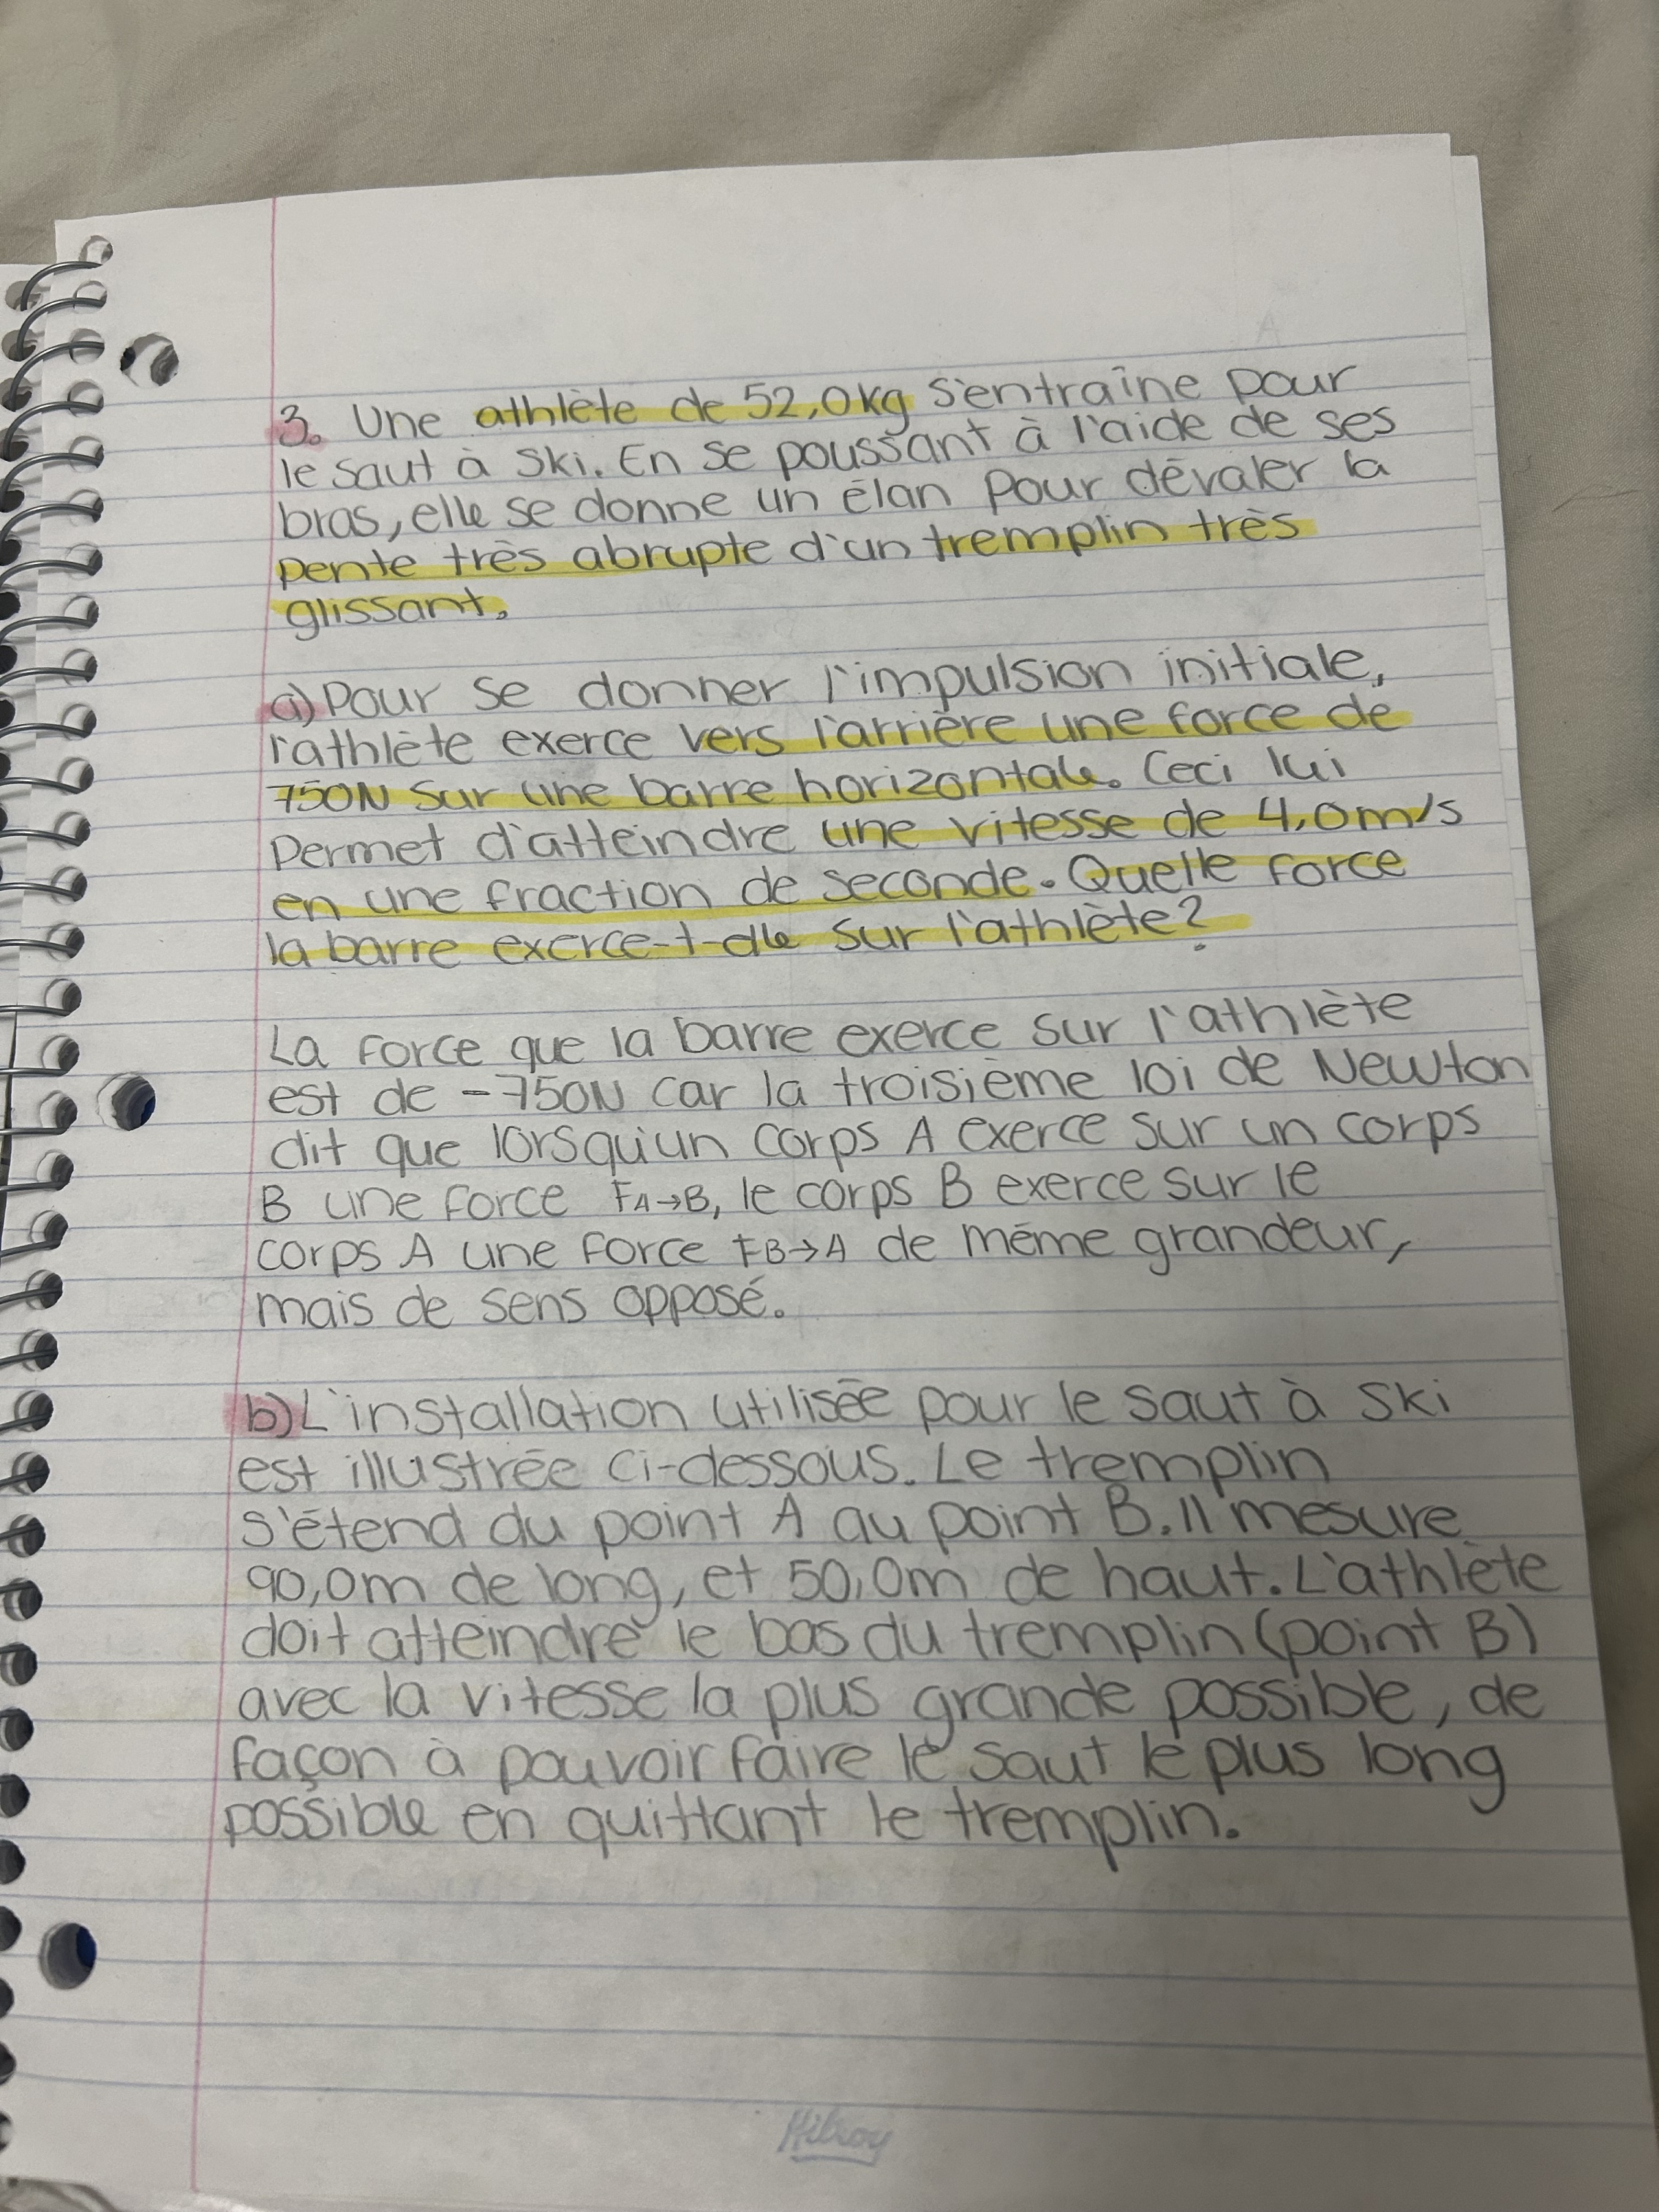 3. Une athlète de 52,0kg s'entraîne pour
le saut à ski. En se poussant à l'aide de ses
bras, elle se donne un élan pour dévaler la
pente très abrupte d'un tremplin très
glissant.
a) Pour se donner l'impulsion initiale,
l'athlète exerce vers l'arrière une force de
750N sur une barre horizontale. Ceci lui
permet d'atteindre une vitesse de 4,0m/s
en une fraction de seconde. Quelle force
la barre exerce-t-elle sur l'athlète?
La force que la barre exerce sur l'athlète
est de -750N car la troisième loi de Newton
dit que lorsqu'un corps A exerce sur un corps
B une force FA→B, le corps B exerce sur le
corps A une force FB→A de même grandeur,
mais de sens opposé.
b) L'installation utilisée pour le saut à ski
est illustrée ci-dessous. Le tremplin
s'étend du point A au point B. Il mesure
90,0m de long, et 50,0m de haut. L'athlète
doit atteindre le bas du tremplin (point B)
avec la vitesse la plus grande possible, de
façon à pouvoir faire le saut le plus long
possible en quittant le tremplin.
Hilroy